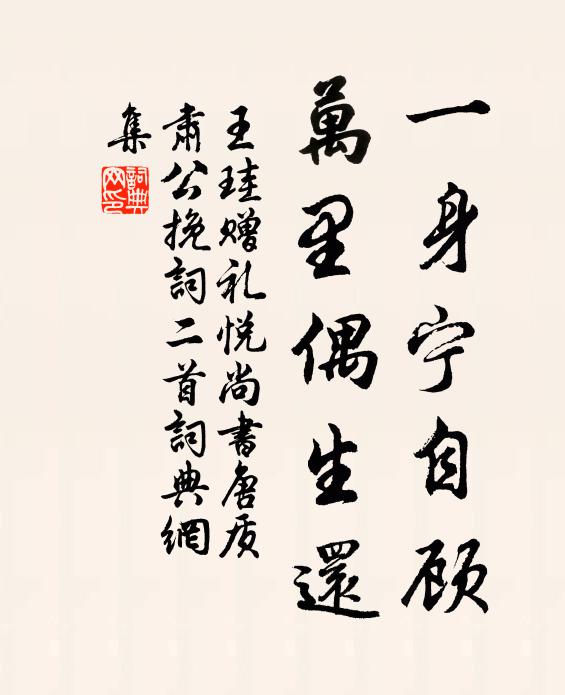 一身宁自顾
萬里偶生還
王珪赠礼悦尚書唐质
肃公挽詞二首詞典網
集
詞典
网印